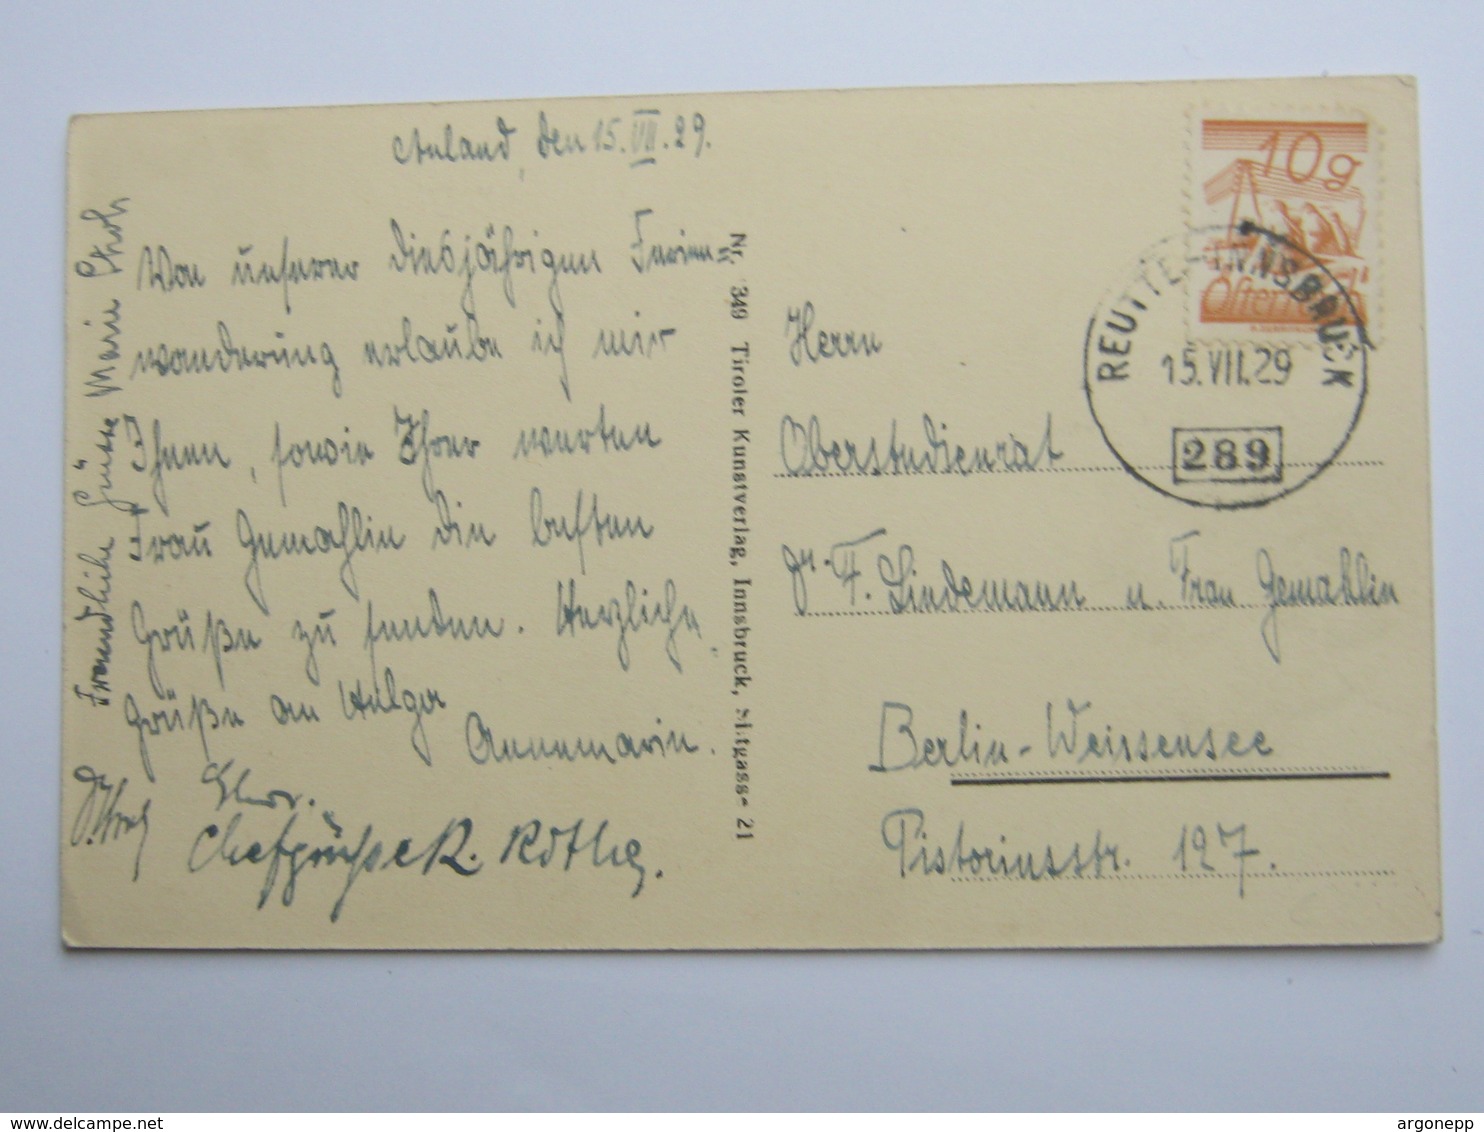 den 15. VII. 29.
Von unserer diesjährigen Ferien=
wanderung erlaube ich mir
Ihnen, sowie Ihrer werten
Frau Gemahlin die besten
Grüße zu senden. Herzliche
Grüße an Helga
Annemarie.
Freundliche Grüsse Marie
Nr. 349 Tiroler Kunstverlag, Innsbruck, 21
10g
REUTTE-INNSBRUCK
15.VII.29
289
Herrn
Oberstudienrat
Dr. F. Lindemann u. Frau Gemahlin
Berlin-Weissensee
Pistoriusstr. 127.
argonepp